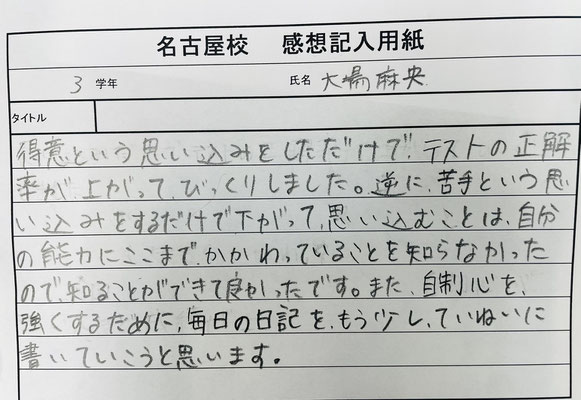 名古屋校 感想記入用紙
3 学年 氏名 大場麻央
タイトル
得意という思い込みをしただけで、テストの正解
率が、上がって、びっくりしました。逆に、苦手という思
い込みをするだけで下がって、思い込むことは、自分
の能力にここまで、かかわっていることを知らなかった
ので、知ることができて良かったです。また、自制心を、
強くするために、毎日の日記を、もう少し、ていねいに
書いていこうと思います。